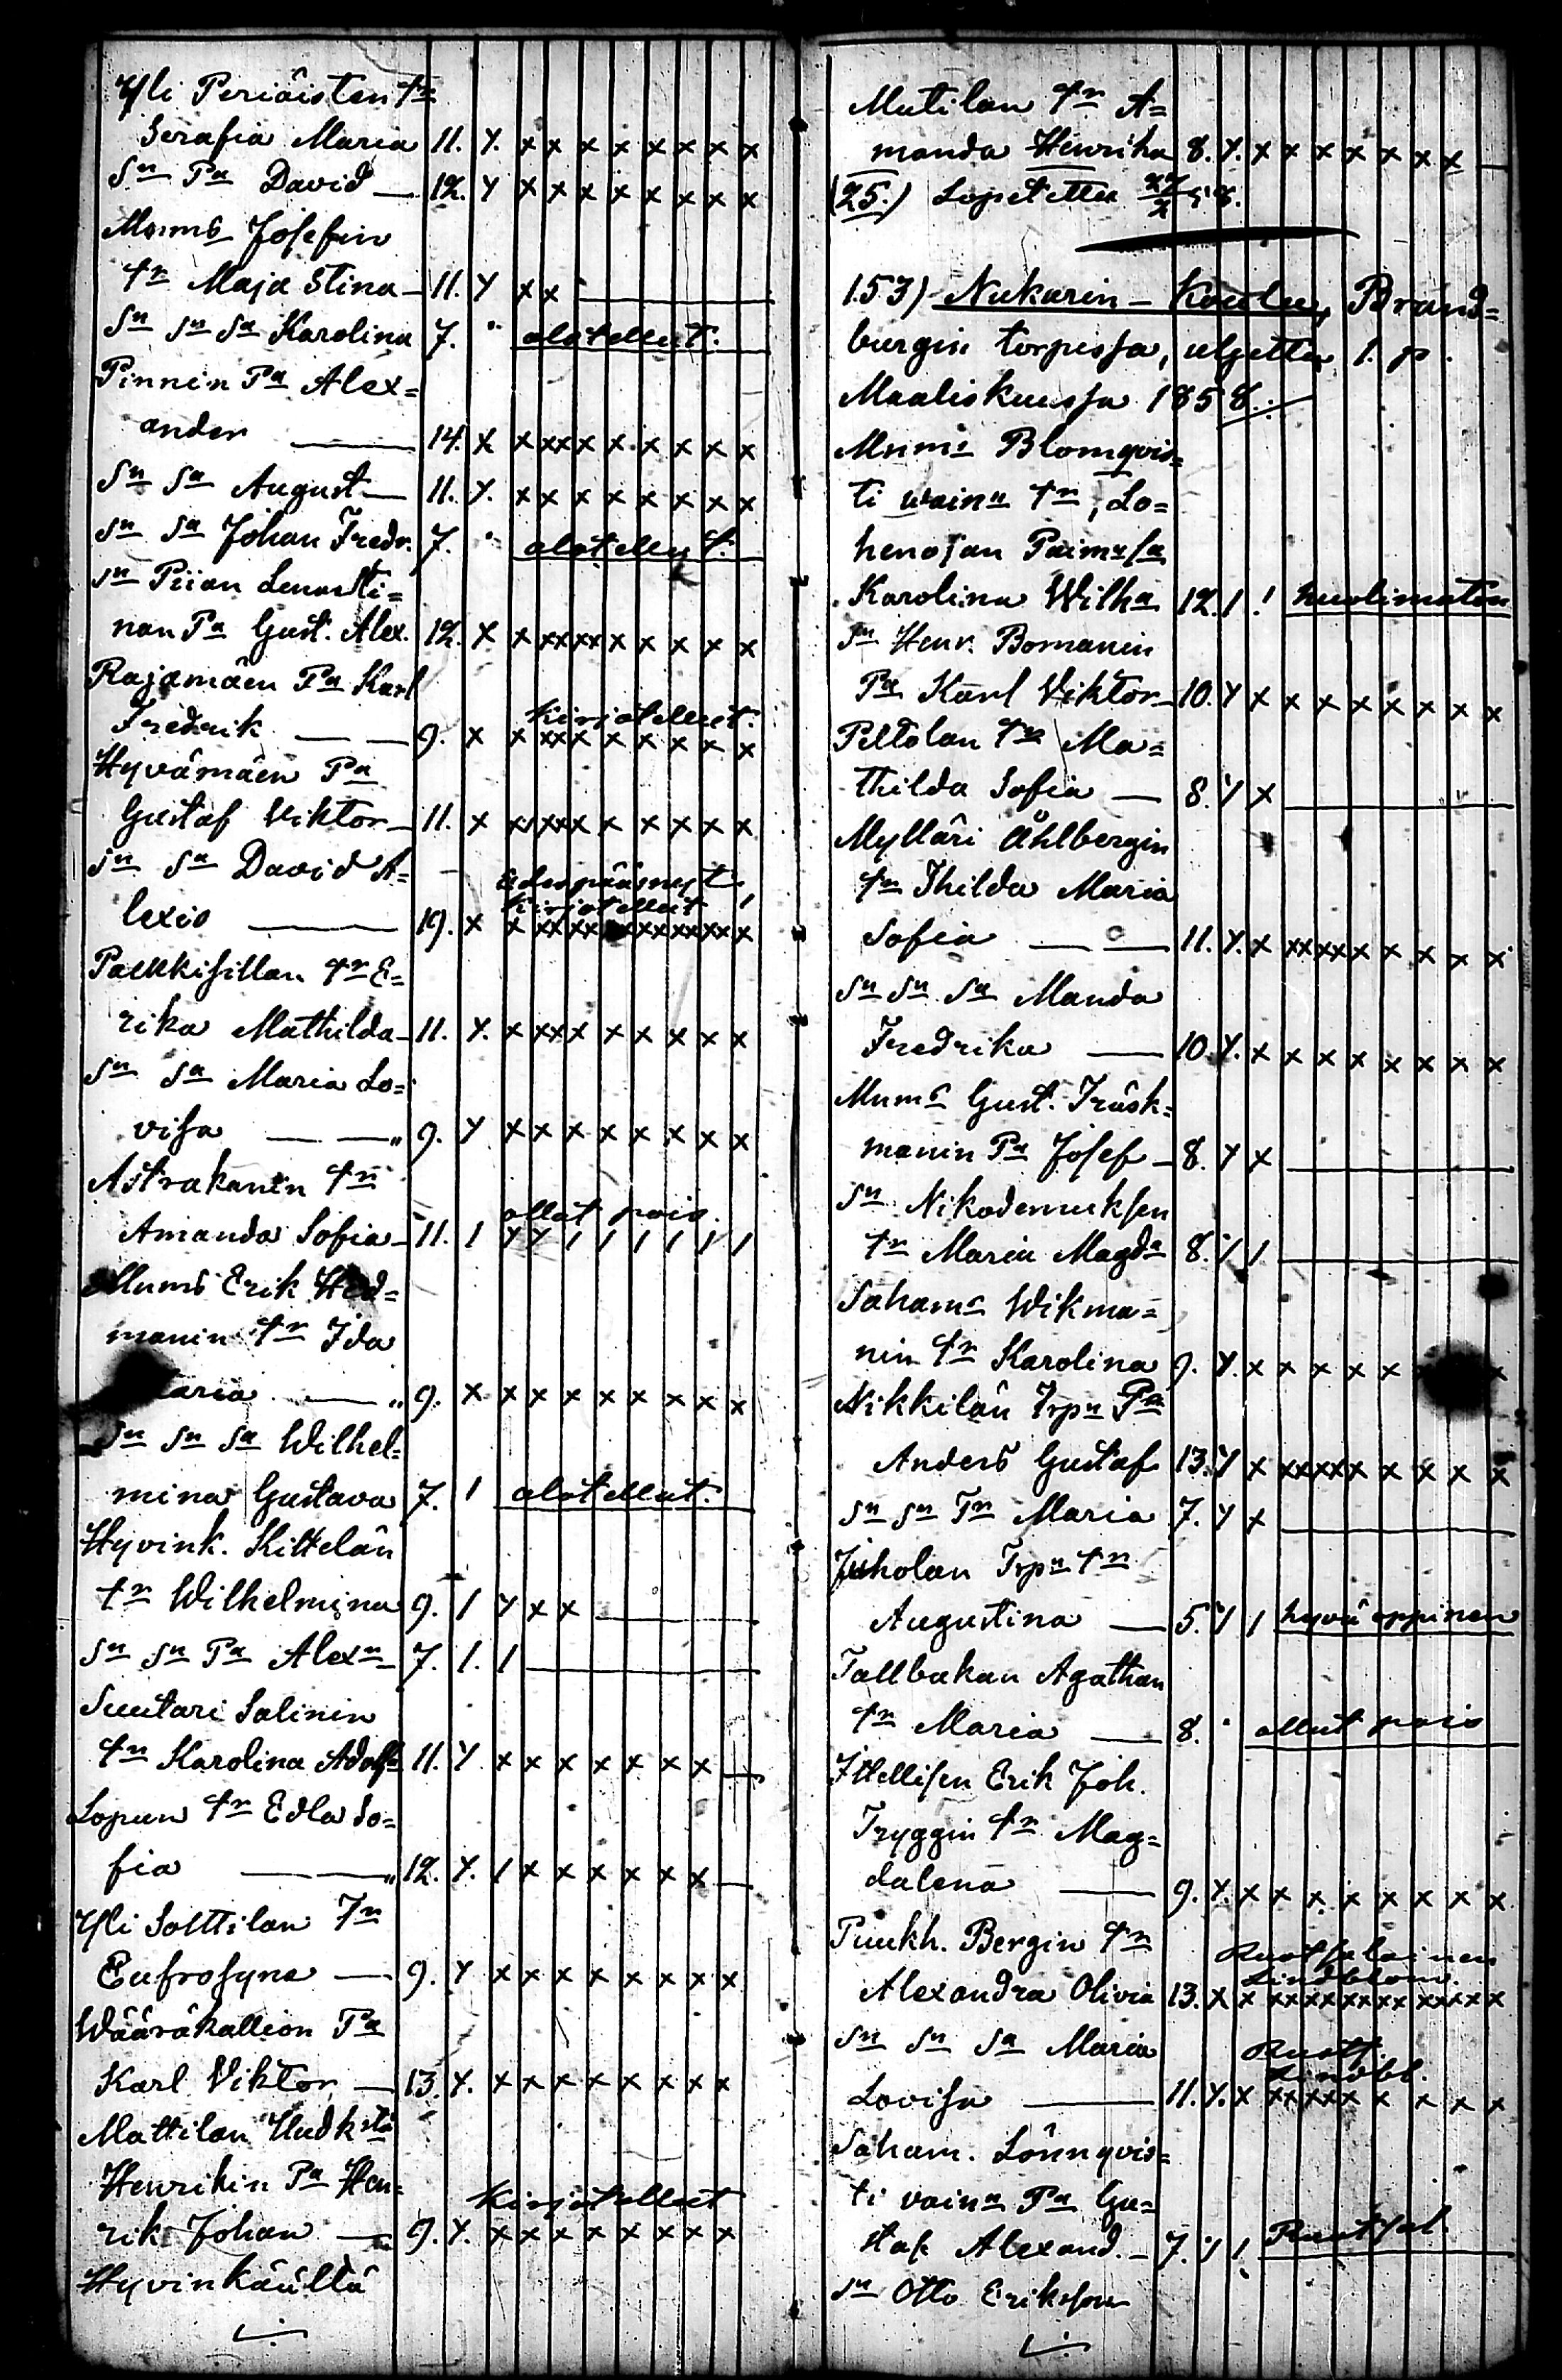 Yli Periäisten tr
Serafia Maria 11. Y. x x x x x x x x
Sn Pa David — 12. Y x x x x x x x x
Mnms Josefin
tr Maja Stina — 11. Y x x —
Sn Sn Sa Karolina 7. " alotellut.
Pinnin Pa Alex=
ander — 14. X x xxx x x x x x x
Sn Sa August — 11. Y. x x x x x x x x
Sn Sa Johan Fredr. 7. " alotellut.
Sn Piian Lenastii=
nan Pa Gust. Alex. 12. X x xx xx x x x x x
Rajamäen Pa Karl
kirjotellut.
Fredrik — — 9. x x xx x x x x x x
Hyvämäen Pa
Gustaf Viktor — 11. x xx xxx x x x x x
Sn Sa David A=
ulospäässyt,
kirjotellut
lexis — 19. x x xx xx xxxxxxxxx
Palkkisillan tr E=
rika Mathilda — 11. Y. x xxx x x x x x
Sn Sa Maria Lo=
visa — — " 9. Y x x x x x x x x
Astrakanin tr
ollut pois.
Amanda Sofia — 11. / Y Y / / / / / /
Mnms Erik Hed=
manin tr Ida
Maria — " 9. x x x x x x x x x
Sn Sn Sa Wilhel=
mina Gustava 7. / alotellut.
Hyvink. Kittelän
tr Wilhelmina 9. / Y x x —
Sn Sn Pa Alexn — 7. /. / —
Suutari Salinin
tr Karolina Adolfa 11. Y x x x x x x x —
Lopun tr Edla So=
fia — — " 12. Y. / x x x x x x —
Yli Solttilan Tr
Eufrosyna — 9. Y x x x x x x x x
Wääräkallion Pa
Karl Viktor — 13. Y. x x x x x x x x
Mattilan Uudkstä
Henrikin Pa Hen=
kirjotellut
rik Johan — 9. Y. x x x x x x x x
Hyvinkäältä
./.
Mutilan tr A=
manda Henrika 8. Y. x x x x x x x —
(25.) Lopetettu
153) Nukarin — Koulu, Brand=
burgin torpissa, uljettu 1. p.
Maaliskuussa 1858.:
Mnms Blomqvis=
ti wain. tr, Lo=
henojan Paimssa
Karolina Wilha 12. / ! huolimaton
Sn Henr. Bomanin
Pa Karl Viktor — 10. Y x x x x x x x x
Peltolan tr Ma=
thilda Sofia — 8. Y x —
Mylläri Åhlbergin
tr Thilda Maria
Sofia — — 11. Y. x xx xx x x x x x
Sn Sn Sa Manda
Fredrika — 10. Y. x x x x x x x x
Mnms Gust. Träsk=
manin Pa Josef — 8. Y x —
Sn Nikodemuksen
tr Maria Magda 8. Y / —
Sahams Wikma=
nin tr Karolina 9. Y. x x x x x x x
Nikkilän Trpn Pa
Anders Gustaf 13. Y x xxxxx x x x x
Sn Sn Tr Maria 7. Y x —
Juholan Trpn tr
Augustina — 5. Y / hyvä oppinen
Tallbakan Agathan
tr Maria — 8. " ollut pois
Itellisen Erik Joh.
Tryggin tr Mag=
dalena — 9. Y. x x x x x x x x
Puukh. Bergin tr
Ruotsalainen
Lindblom.
Alexandra Olivia 13. X x xxxxxxxx xxxx x
Sn Sn Sa Maria
Ruots.
Lindbl.
Lovisa — 11. Y. x xxxxx x x x x
Saham. Lönnqvis=
ti vainn Pa Gu=
staf Alexand. — 7. Y / Ruotsal.
Sn Otto Eriksson
./.